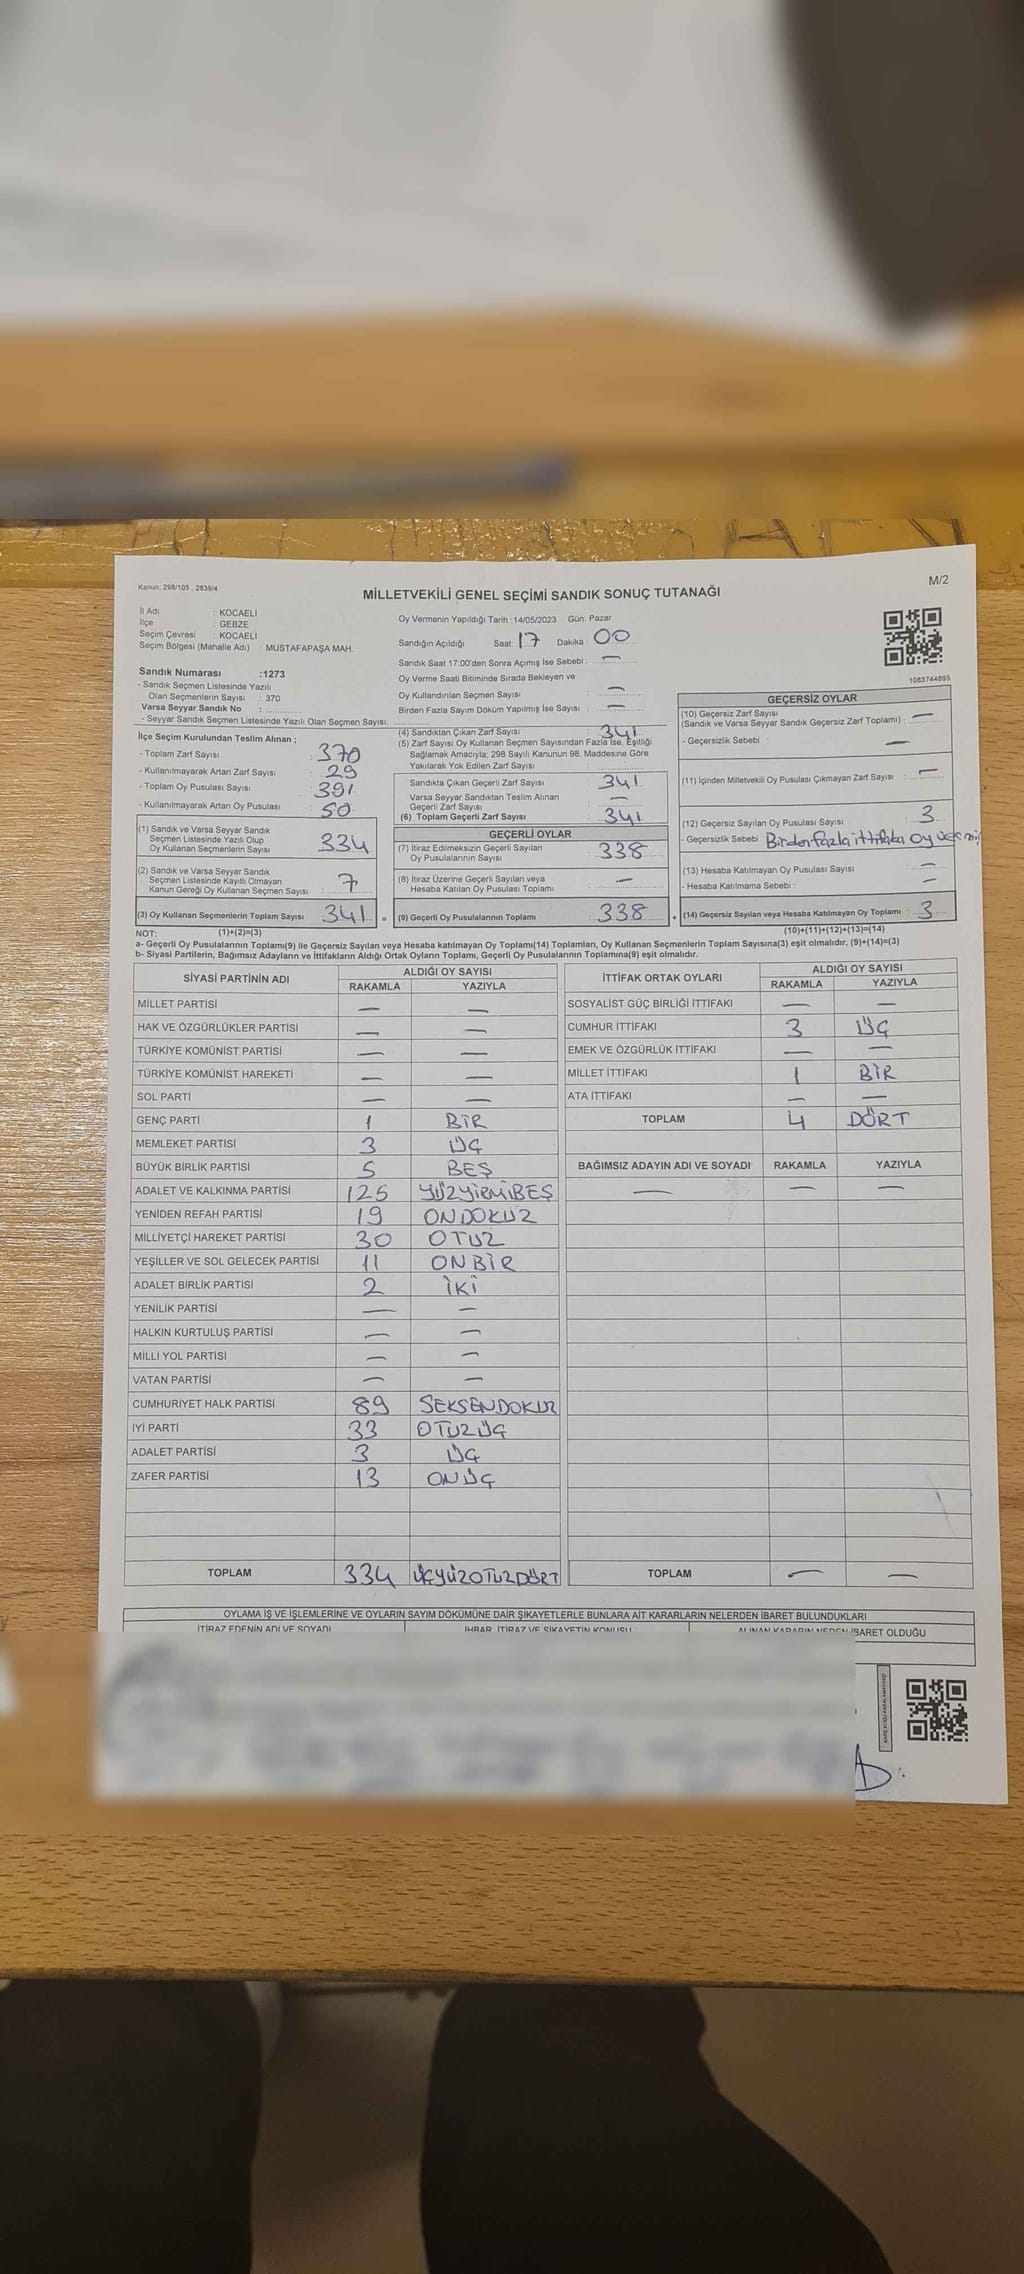 Kanun: 298/105 , 2839/4
M/2
MİLLETVEKİLİ GENEL SEÇİMİ SANDIK SONUÇ TUTANAĞI
İl Adı : KOCAELİ
İlçe : GEBZE
Seçim Çevresi : KOCAELİ
Seçim Bölgesi (Mahalle Adı) : MUSTAFAPAŞA MAH.
Sandık Numarası :1273
- Sandık Seçmen Listesinde Yazılı
Olan Seçmenlerin Sayısı : 370
Varsa Seyyar Sandık No :
- Seyyar Sandık Seçmen Listesinde Yazılı Olan Seçmen Sayısı:
Oy Vermenin Yapıldığı Tarih :14/05/2023 Gün: Pazar
Sandığın Açıldığı Saat: 17 Dakika : 00
Sandık Saat 17:00'den Sonra Açımış İse Sebebi : —
Oy Verme Saati Bitiminde Sırada Bekleyen ve
Oy Kullandırılan Seçmen Sayısı : —
Birden Fazla Sayım Döküm Yapılmış İse Sayısı : —
1083744895
İlçe Seçim Kurulundan Teslim Alınan ;
- Toplam Zarf Sayısı : 370
- Kullanılmayarak Artan Zarf Sayısı : 29
- Toplam Oy Pusulası Sayısı : 391
- Kullanılmayarak Artan Oy Pusulası : 50
(1) Sandık ve Varsa Seyyar Sandık
Seçmen Listesinde Yazılı Olup
Oy Kullanan Seçmenlerin Sayısı : 334
(2) Sandık ve Varsa Seyyar Sandık
Seçmen Listesinde Kayıtlı Olmayan
Kanun Gereği Oy Kullanan Seçmen Sayısı : 7
(3) Oy Kullanan Seçmenlerin Toplam Sayısı : 341 =
(4) Sandıktan Çıkan Zarf Sayısı : 341
(5) Zarf Sayısı Oy Kullanan Seçmen Sayısından Fazla İse, Eşitliği
Sağlamak Amacıyla; 298 Sayılı Kanunun 98. Maddesine Göre
Yakılarak Yok Edilen Zarf Sayısı :
Sandıkta Çıkan Geçerli Zarf Sayısı : 341
Varsa Seyyar Sandıktan Teslim Alınan
Geçerli Zarf Sayısı : —
(6) Toplam Geçerli Zarf Sayısı : 341
GEÇERLİ OYLAR
(7) İtiraz Edilmeksizin Geçerli Sayılan
Oy Pusulasının Sayısı : 338
(8) İtiraz Üzerine Geçerli Sayılan veya
Hesaba Katılan Oy Pusulası Toplamı : —
(9) Geçerli Oy Pusulalarının Toplamı : 338 +
GEÇERSİZ OYLAR
(10) Geçersiz Zarf Sayısı
(Sandık ve Varsa Seyyar Sandık Geçersiz Zarf Toplamı) : —
- Geçersizlik Sebebi : —
(11) İçinden Milletvekili Oy Pusulası Çıkmayan Zarf Sayısı : —
(12) Geçersiz Sayılan Oy Pusulası Sayısı : 3
- Geçersizlik Sebebi Birden fazla ittifaka oy vermiş
(13) Hesaba Katılmayan Oy Pusulası Sayısı : —
- Hesaba Katılmama Sebebi : —
(14) Geçersiz Sayılan veya Hesaba Katılmayan Oy Toplamı : 3
NOT: (1)+(2)=(3) (10)+(11)+(12)+(13)=(14)
a- Geçerli Oy Pusulalarının Toplamı(9) ile Geçersiz Sayılan veya Hesaba katılmayan Oy Toplamı(14) Toplamları, Oy Kullanan Seçmenlerin Toplam Sayısına(3) eşit olmalıdır. (9)+(14)=(3)
b- Siyasi Partilerin, Bağımsız Adayların ve İttifakların Aldığı Ortak Oyların Toplamı, Geçerli Oy Pusulalarının Toplamına(9) eşit olmalıdır.
SİYASİ PARTİNİN ADI ALDIĞI OY SAYISI
RAKAMLA YAZIYLA
MİLLET PARTİSİ — —
HAK VE ÖZGÜRLÜKLER PARTİSİ — —
TÜRKİYE KOMÜNİST PARTİSİ — —
TÜRKİYE KOMÜNİST HAREKETİ — —
SOL PARTİ — —
GENÇ PARTİ 1 BİR
MEMLEKET PARTİSİ 3 ÜÇ
BÜYÜK BİRLİK PARTİSİ 5 BEŞ
ADALET VE KALKINMA PARTİSİ 125 YÜZYİRMİBEŞ
YENİDEN REFAH PARTİSİ 19 ONDOKUZ
MİLLİYETÇİ HAREKET PARTİSİ 30 OTUZ
YEŞİLLER VE SOL GELECEK PARTİSİ 11 ONBİR
ADALET BİRLİK PARTİSİ 2 İKİ
YENİLİK PARTİSİ — —
HALKIN KURTULUŞ PARTİSİ — —
MİLLİ YOL PARTİSİ — —
VATAN PARTİSİ — —
CUMHURİYET HALK PARTİSİ 89 SEKSENDOKUZ
İYİ PARTİ 33 OTUZÜÇ
ADALET PARTİSİ 3 ÜÇ
ZAFER PARTİSİ 13 ONÜÇ
TOPLAM 334 ÜÇYÜZOTUZDÖRT
İTTİFAK ORTAK OYLARI ALDIĞI OY SAYISI
RAKAMLA YAZIYLA
SOSYALİST GÜÇ BİRLİĞİ İTTİFAKI — —
CUMHUR İTTİFAKI 3 ÜÇ
EMEK VE ÖZGÜRLÜK İTTİFAKI — —
MİLLET İTTİFAKI 1 BİR
ATA İTTİFAKI — —
TOPLAM 4 DÖRT
BAĞIMSIZ ADAYIN ADI VE SOYADI RAKAMLA YAZIYLA
— — —
TOPLAM — —
OYLAMA İŞ VE İŞLEMLERİNE VE OYLARIN SAYIM DÖKÜMÜNE DAİR ŞİKAYETLERLE BUNLARA AİT KARARLARIN NELERDEN İBARET BULUNDUKLARI
İTİRAZ EDENİN ADI VE SOYADI İHBAR, İTİRAZ VE ŞİKAYETİN KONUSU ALINAN KARARIN NEDEN İBARET OLDUĞU